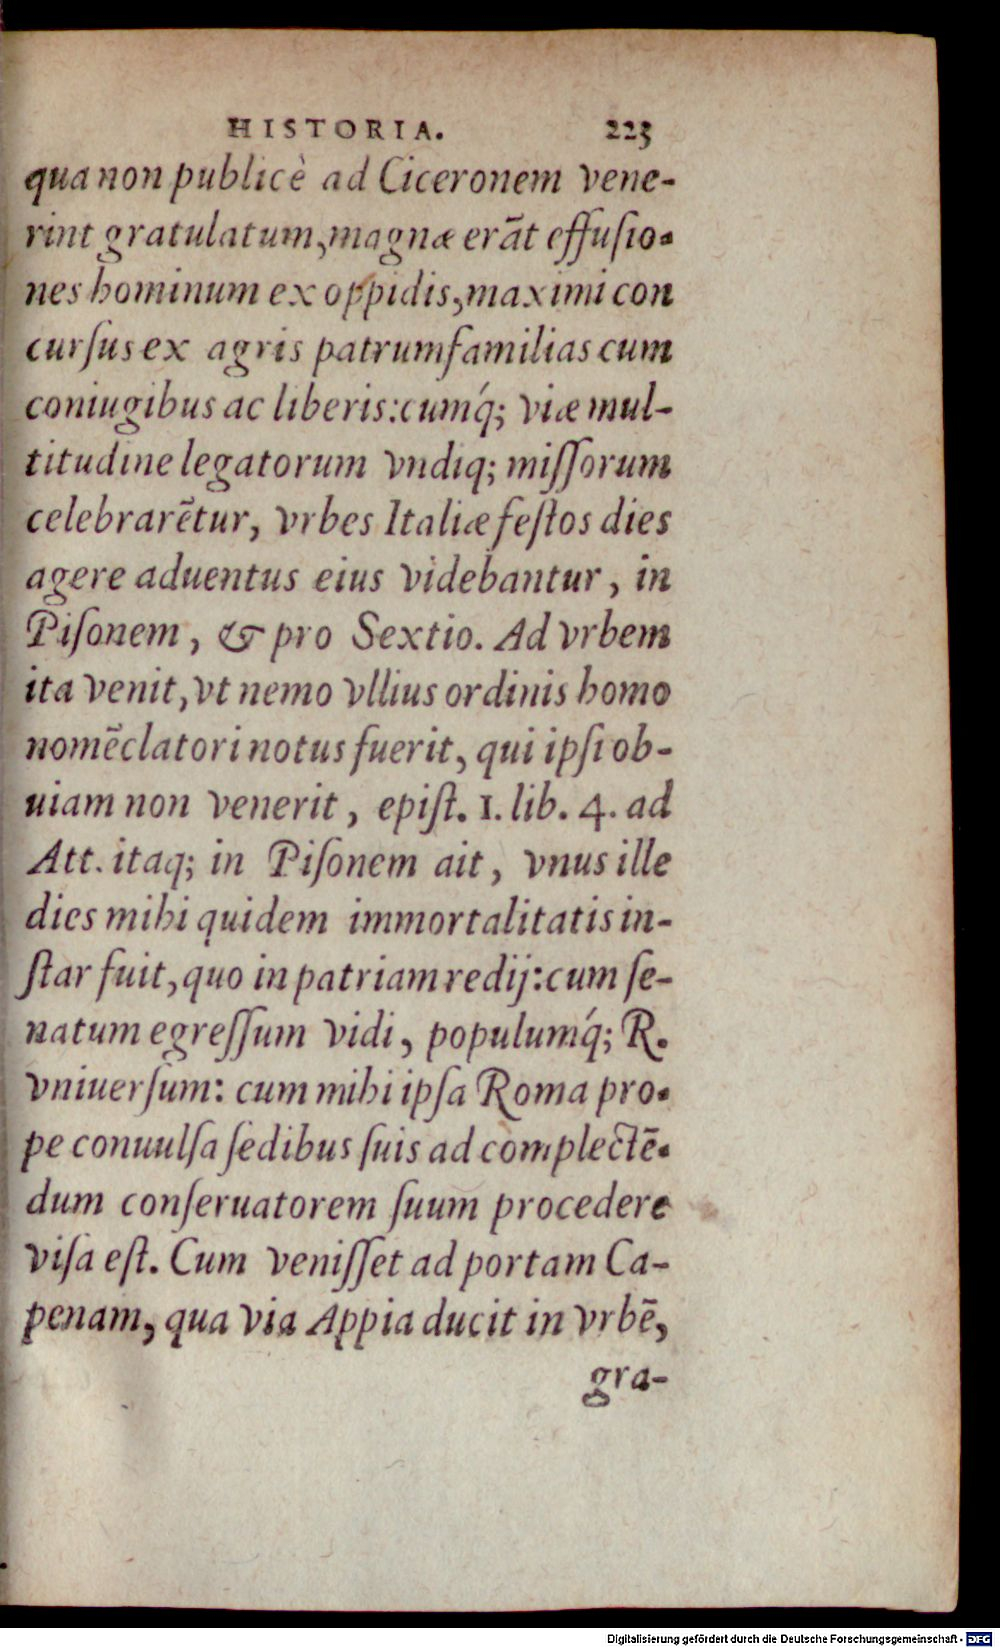 HISTORIA. 223
qua non publicè ad Ciceronem vene-
rint gratulatum, magnæ erãt effuſio-
nes hominum ex oppidis, maximi con
curſus ex agris patrumfamilias cum
coniugibus ac liberis: cumq́; viæ mul-
titudine legatorum vndiq; miſſorum
celebrarẽtur, vrbes Italiæ feſtos dies
agere aduentus eius videbantur, in
Piſonem, & pro Sextio. Ad vrbem
ita venit, vt nemo vllius ordinis homo
nomẽclatori notus fuerit, qui ipſi ob-
uiam non venerit, epiſt. 1. lib. 4. ad
Att. itaq; in Piſonem ait, vnus ille
dies mihi quidem immortalitatis in-
ſtar fuit, quo in patriam redij: cum ſe-
natum egreſſum vidi, populumq́; R.
vniuerſum: cum mihi ipſa Roma pro-
pe conuulſa ſedibus ſuis ad complectẽ-
dum conſeruatorem ſuum procedere
viſa eſt. Cum veniſſet ad portam Ca-
penam, qua via Appia ducit in vrbẽ,
gra-
Digitalisierung gefördert durch die Deutsche Forschungsgemeinschaft - DFG